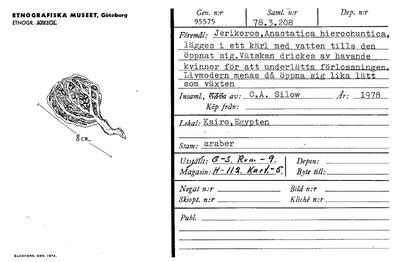 ETNOGRAFISKA MUSEET, Göteborg
ETNOGR.
8 cm.
ELANDERS GBG. 1972.
Gen. nr Saml. nr Dep. nr
95575 78.3.208
Föremål: Jerikoros,Anastatica hierochuntica,
lägges i ett kärl med vatten tills den
öppnat sig.Vätskan drickes av havande
kvinnor för att underlätta förlossningen.
Livmodern menas då öppna sig lika lätt
som växten
Insaml. av: C.A. Silow År: 1978
Köp från:
Lokal: Kairo,Egypten
Stam: araber
Utställt: G-S. Rum-9. Depon:
Magasin: H-112. Kart-5. Byte till:
Negat n:r Bild n:r
Skiopt. n:r Kliché n:r
Publ.